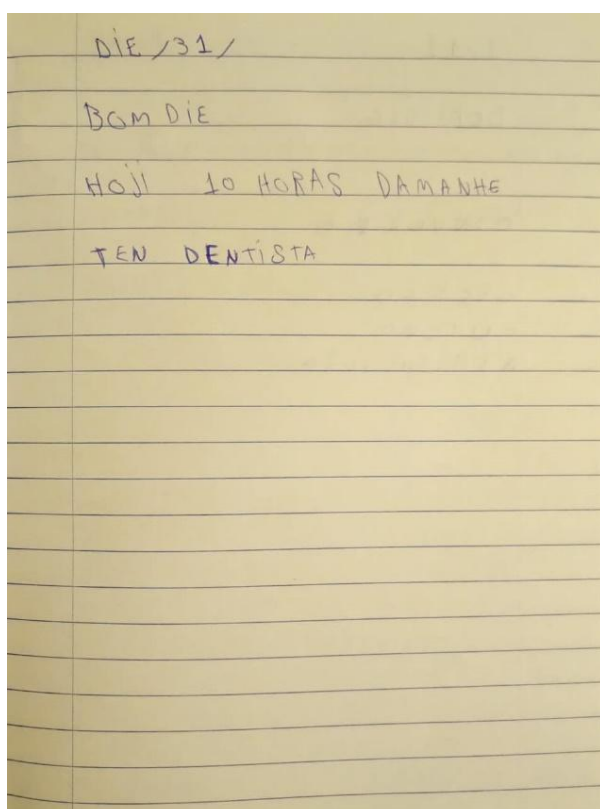 DIE /31/
BOM DIE
HOJI 10 HORAS DAMANHE
TEN DENTISTA